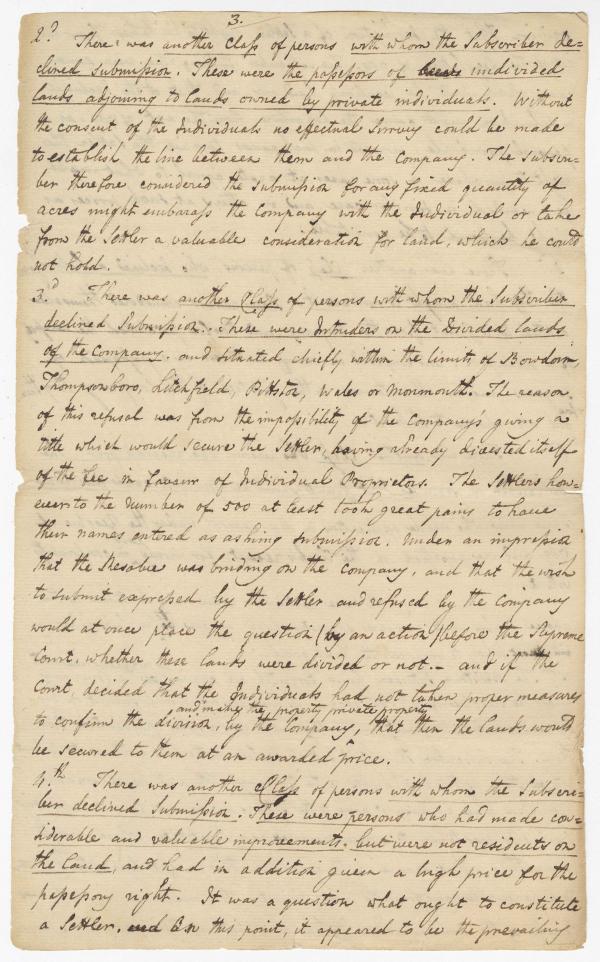 3.
2d There was another Class of persons with whom the Subscriber de=
clined submission. These were the possessors of undivided
lands adjoining to lands owned by private individuals. Without
the consent of the Individuals no effectual Survey could be made
to establish the line between them and the Company. The subscri=
ber therefore considered the submission for any fixed quantity of
acres might embarass the Company with the Individual or take
from the Settler a valuable consideration for land, which he could
not hold.
3d There was another Class of persons with whom the Subscriber
declined Submission. These were Intruders on the Divided lands
of the Company. and situated chiefly within the limits of Bowdoin,
Thompsonboro, Litchfield, Pittston, Wales or Monmouth. The reason
of this refusal was from the impossibility of the Company's giving a
title which would secure the Settler, having already divested itself
of the fee in favour of Individual Proprietors. The Settlers how=
ever to the number of 500 at least took great pains to have
their names entered as asking submission. Under an impression
that the Resolve was binding on the company, and that the wish
to submit expressed by the Settler and refused by the Company
would at once place the question (by an action) before the Supreme
Court, whether these lands were divided or not.- and if the
Court, decided that the Individuals had not taken proper measures
and make the property private property
to confirm the division, by the Company, that then the lands would
be secured to them at an awarded price.
4.th There was another Class of persons with whom the Subscri=
ber declined Submission. These were persons who had made con=
siderable and valuable improvements. but were not residents on
the Land, and had in addition given a high price for the
possessory right. It was a question what ought to constitute
a Settler. and On this point, it appeared to be the prevailing